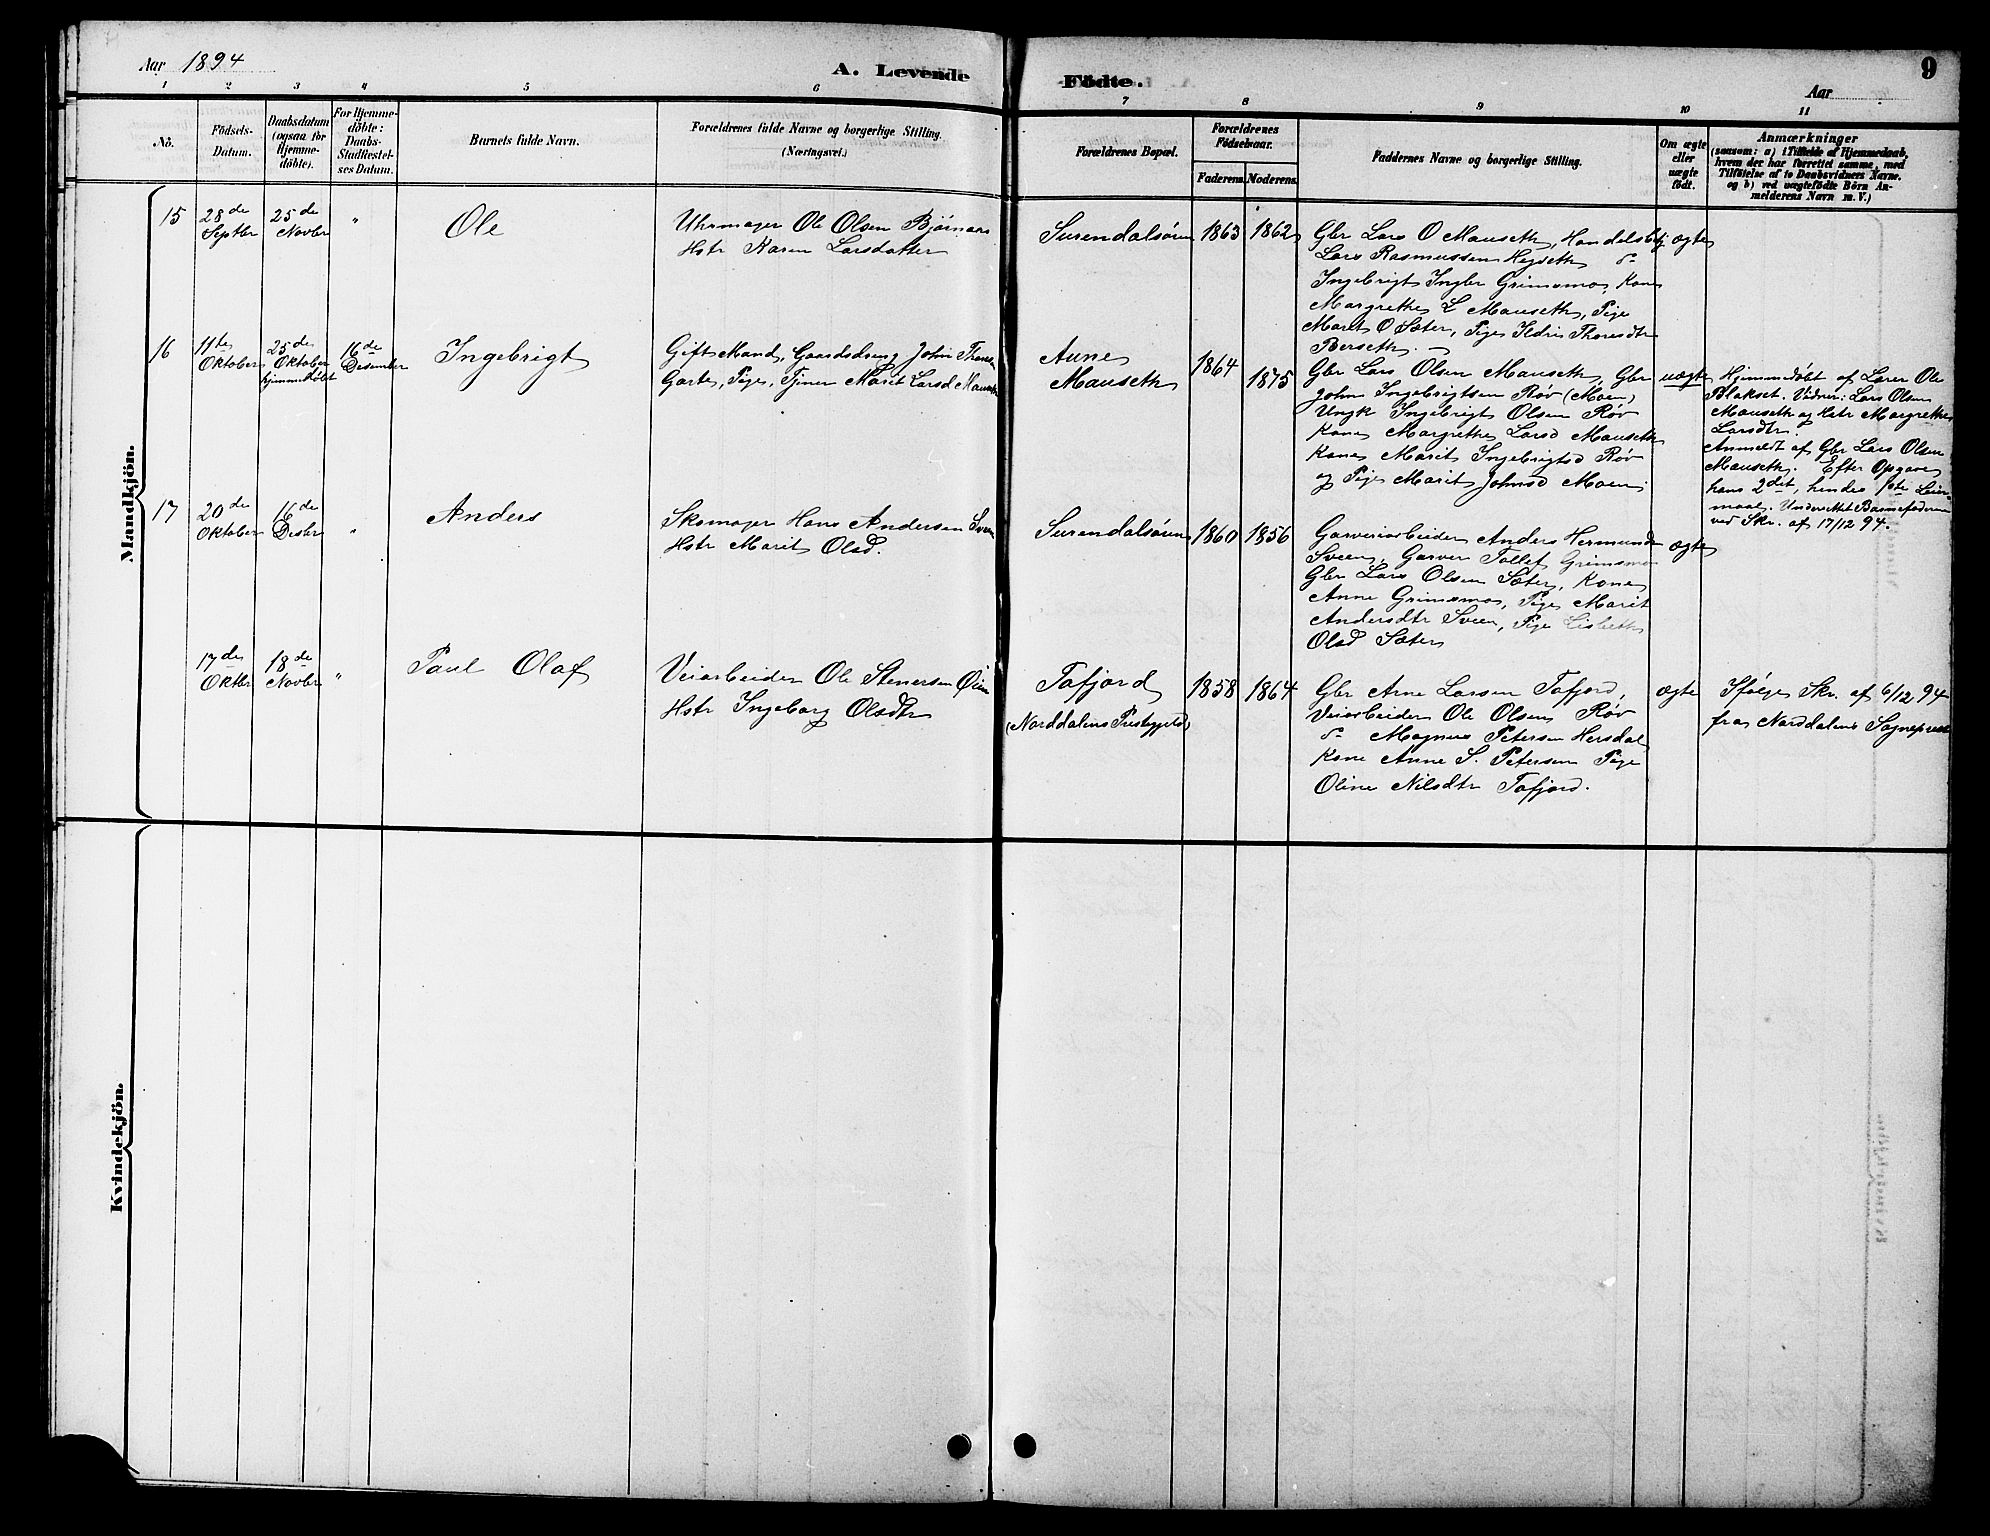 Aar 1894
A. Levende
Födte.
9
Aar
1 2 3 4 5 6
7 8 9 10 11
No.
Födsels-
Datum.
Daabsdatum
(ogsaa for
Hjemme-
döbte).
For Hjemme-
döbte:
Daabs-
Stadfæstel-
ses Datum.
Barnets fulde Navn.
Forældrenes fulde Navne og borgerlige Stilling.
(Næringsvei.)
Forældrenes Bopæl.
Forældrenes
Födselsaar.
Faderens.
Moderens.
Faddernes Navne og borgerlige Stilling.
Om ægte
eller
uægte
födt.
Anmærkninger
(saasom: a) i Tilfælde af Hjemmedaab,
hvem der har forrettet samme, med
Tilföielse af to Daabsvidners Navne.
og b) ved uægtefödte Börn An-
melderens Navn m. V.)
Mandkjön.
15
28de
Septbr
25de
Novbr
"
Ole
Uhrmager Ole Olsen Bjørnaas
Hstr Karen Larsdatter
Surendalsøren
1863
1862
Gbr Lars O Mauseth, Handelsbetj
Lars Rasmussen Hejseth
Ingebrigt Ingbr Grimsmo, Kone
Margrethe L Mauseth, Pige
Marit O Sæter, Pige Ildri Thoresdtr
Berseth.
ægte
16
11te
Oktober
25de
Oktober
hjemmedøbt
16de
Desember
Ingebrigt
Gift Mand, Gaardsdreng John
Garte, Pige, Tjener Marit Larsd Mauseth
Aune
Mauseth
1864
1875
Gbr Lars Olsen Mauseth, Gbr
John Ingebrigtsen Røv (Moen)
Ungk Ingebrigt Olsen Røv
Kone Margrethe Larsd Mauseth
Kone Marit Ingebrigtsd Røv
og Pige Marit Johnsd Moen.
uægte
Hjemmedøbt af Lærer Ole
Blakset. Vidner: Lars Olsen
Mauseth og Hstr Margrethe
Larsdtr.
Anmeldt af Gbr Lars Olsen
Mauseth. Efter Opgave
hans 2det, hendes 1ste Leier-
maal. Underrettet Barnefaderen
ved Skr. af 17/12 94.
17
20de
Oktober
16de
Desbr
"
Anders
Skomager Hans Andersen Sveen
Hstr Marit Olsd.
Surendalsøren
1860
1856
Garveriarbeider Anders Hermunds
Sveen, Garver Tollef Grimsmo
Gbr Lars Olsen Sæter, Kone
Anne Grimsmo, Pige Marit
Andersdtr Sveen, Pige Lisbeth
Olsd Sæter
ægte
17de
Oktbr
18de
Novbr
"
Paul Olaf
Veiarbeider Ole Stenersen Øien
Hstr Ingeborg Olsdtr
Tafjord
(Norddalens Prestegjeld)
1858
1864
Gbr Arne Larsen Tafjord,
Veiarbeider Ole Olsen Røv
Magnus Petersen Hersdal
Kone Anne S. Petersen Pige
Oline Nilsdtr Tafjord.
ægte
Ifølge Skr. af 6/12 94
fra Norddalens Sogneprest
Kvindekjön.